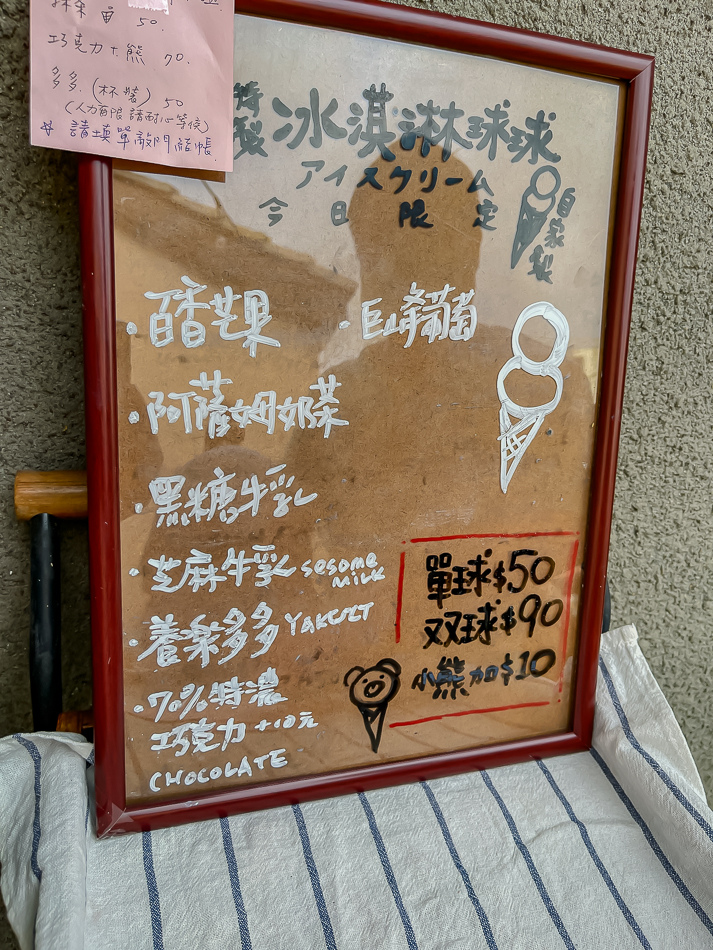 50.
巧克力+熊 70.
多多.(杯裝) 50
(人力有限 請耐心等候)
☆ 請填單敲門結帳.
特製 冰淇淋球球
アイスクリーム
今日限定
自家製
• 百香芒果
• 巨峰葡萄
• 阿薩姆奶茶
• 黑糖牛乳
• 芝麻牛乳 sesome MILK
• 養樂多多 YAKULT
• 70%特濃
巧克力 +10元
CHOCOLATE
單球$50
双球$90
小熊加$10